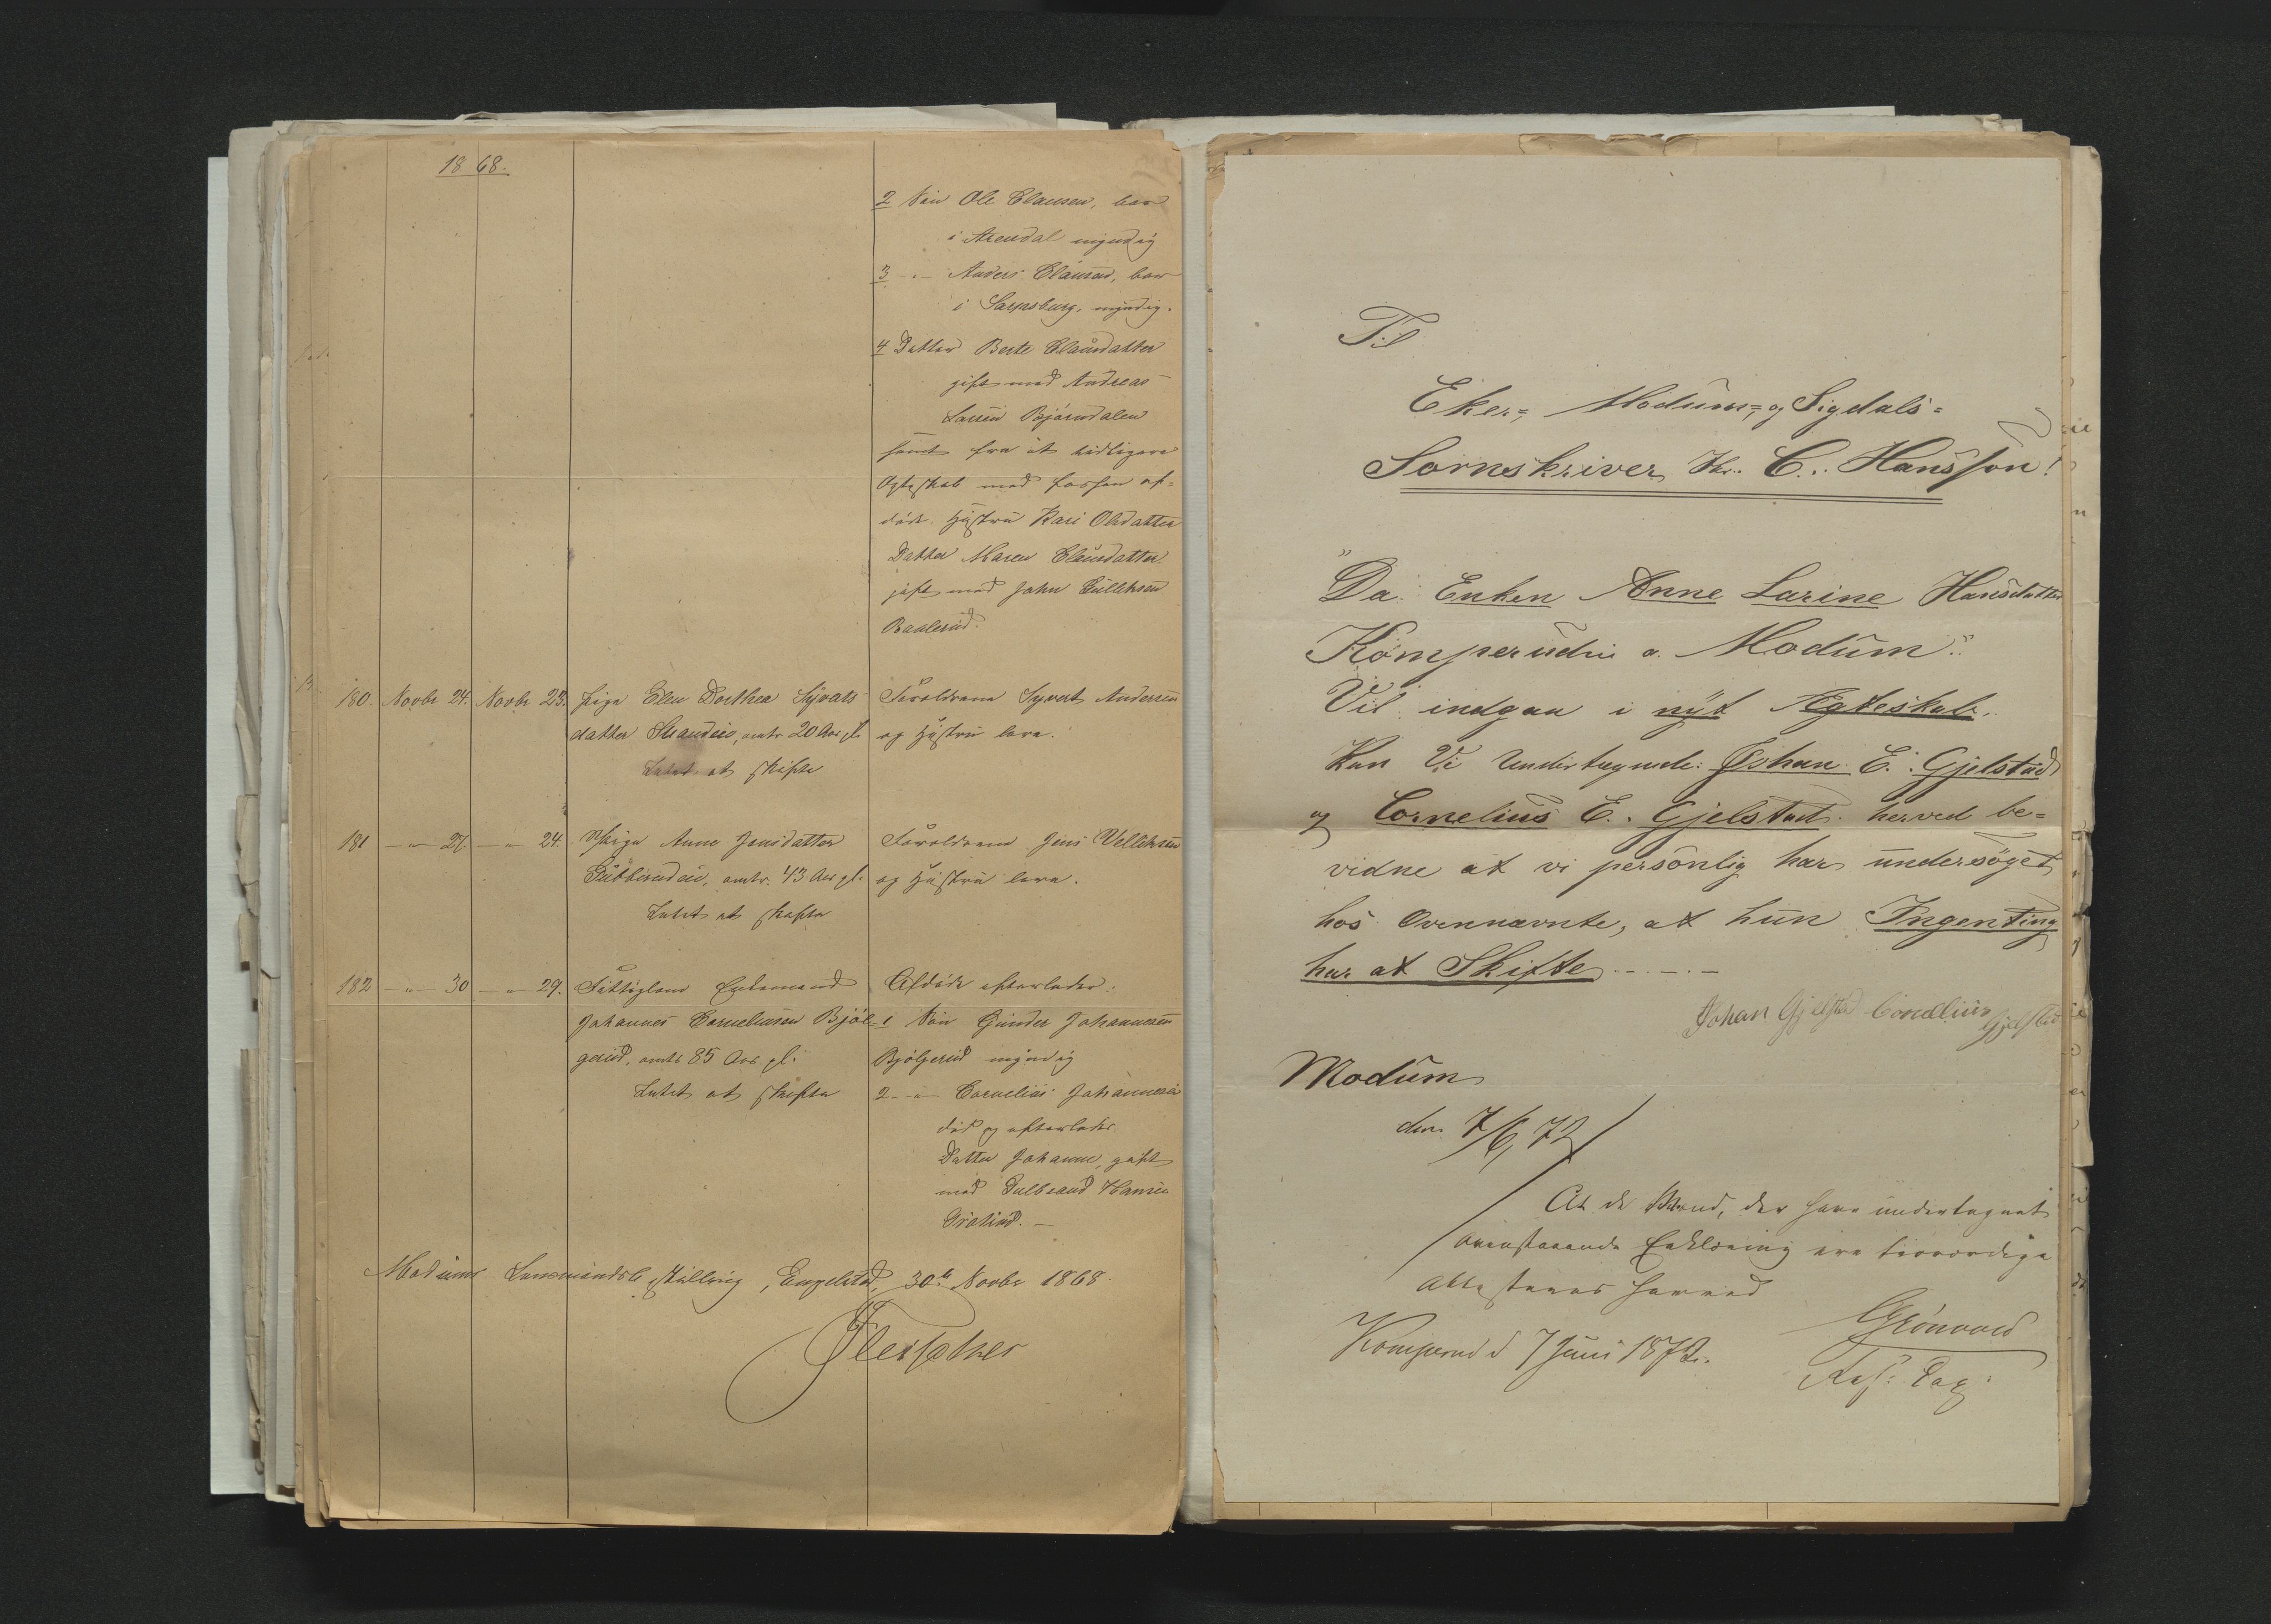 1868.
2 Søn Ole Clausen, boer
i Arendal myndig
3 - Anders Clausen, boer
i Sarpsburg, myndig.
4 Datter Berte Clausdatter
gift med Andreas
Larsen Bjørndalen
samt fra et tidligere
Ægteskab med forhen af-
døde Hustru Kari Olsdatter
Datter Maren Clausdatter
gift med John Gulliksen
Baalerud.
180. Novbr 24. Novbr 23. Pige Elen Dorthea Syverts-
datter Strandeie, omtr 20 Aar gl.
Intet at skifte
Forældrene Syvert Andersen
og Hustru leve.
181 -"- 27 -"- 24. Pige Anne Jensdatter
Gubberudeie, omtr. 43 Aar gl.
Intet at skifte
Forældrene Jens Velliksen
og Hustru leve.
182 -"- 30 -"- 29. Fattiglem Enkemand
Johannes Corneliusen Bjøl-
gerud, omtr 85 Aar gl.
Intet at skifte
Afdøde efterlader:
1 Søn Gunder Johannesen
Bjølgerud myndig
2 -"- Cornelius Johannesen
død og efterlader
Datter Johanne, gift
med Gulbrand Hansen
Modums Lensmandsbestilling, Engelstad, 30te Novbr 1868.
Til
Eker-, Modums-, og Sigdals-
Sornskriver Hr. C. Hansson!
"Da Enken Anne Larine Hansdatter
Komperudeie a. Modum"
Vil indgaa i nyt Ægteskab.
Kan Vi Undertegnede: Johan E. Gjelstad
og Cornelius E. Gjelstad herved be=
vidne at vi personlig har undersøget
hos Ovennævnte, at hun Ingenting
har at Skifte
Johan Gjelstad Cornelius Gjelstad
Modum
den 7/6 72
At de Mænd, der have undertegnet
ovenstaaende Erklæring ere troværdige
attesteres herved
Komperud d 7 Juni 1872.
Grønvold
Res. Cap.